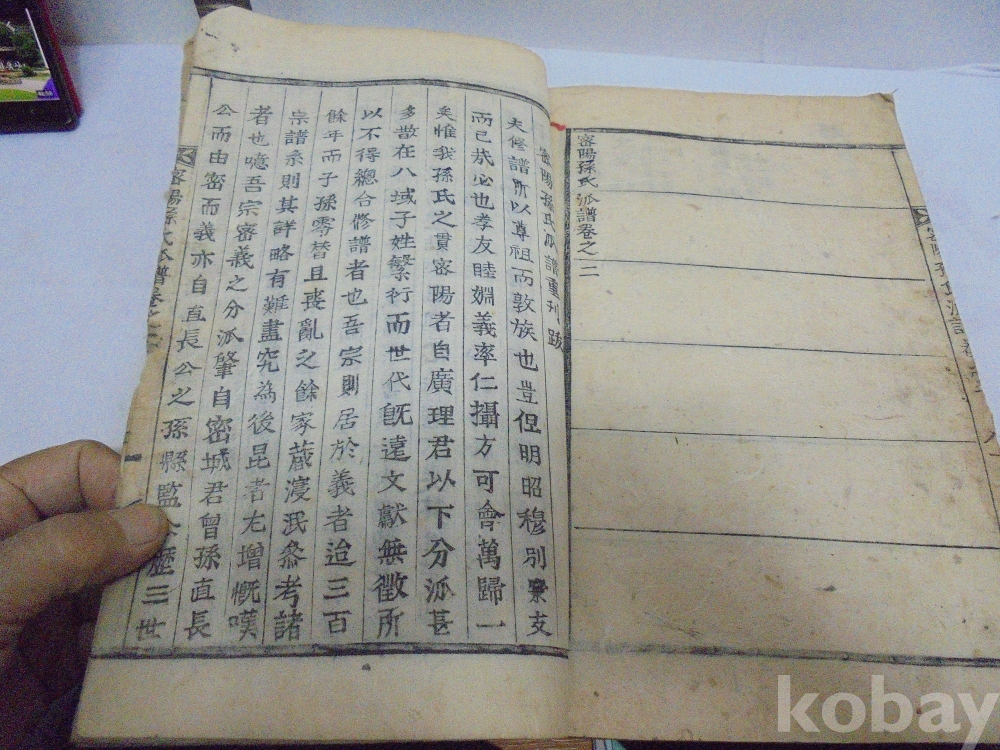 密陽孫氏派譜 卷之二
密陽孫氏 派譜卷之二
密陽孫氏派譜重刊跋
夫修譜所以尊祖而敦族也豈但明昭穆別衆支
而已哉必也孝友睦婣義率仁攝方可會萬歸一
矣惟我孫氏之貫密陽者自廣理君以下分派甚
多散在八域子姓繁衍而世代旣遠文獻無徵所
以不得總合修譜者也吾宗則居於義者迨三百
餘年而子孫零替且喪亂之餘家藏寖泯叅考諸
宗譜系則其詳略有難盡究為後昆者尤增慨嘆
者也噫吾宗密義之分派肇自密城君曾孫直長
公而由密而義亦自直長公之孫縣監公歷三世
密陽孫氏派譜卷之二
kobay